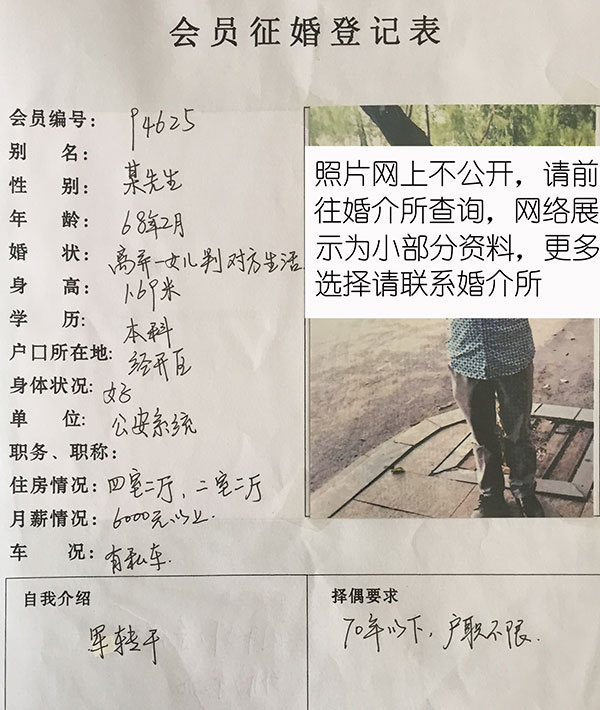 会员征婚登记表
会员编号: 94625
别 名:
性 别: 某先生
年 龄: 68年2月
婚 状: 离弃一女儿判对方生活
身 高: 1.69米
学 历: 本科
户口所在地: 经开区
身体状况: 好
单 位: 公安系统
职务、职称:
住房情况: 四室二厅, 二室二厅
月薪情况: 6000元以上.
车 况: 有私车.
照片网上不公开，请前
往婚介所查询，网络展
示为小部分资料，更多
选择请联系婚介所
自我介绍
军转干
择偶要求
70年以下, 户职不限.